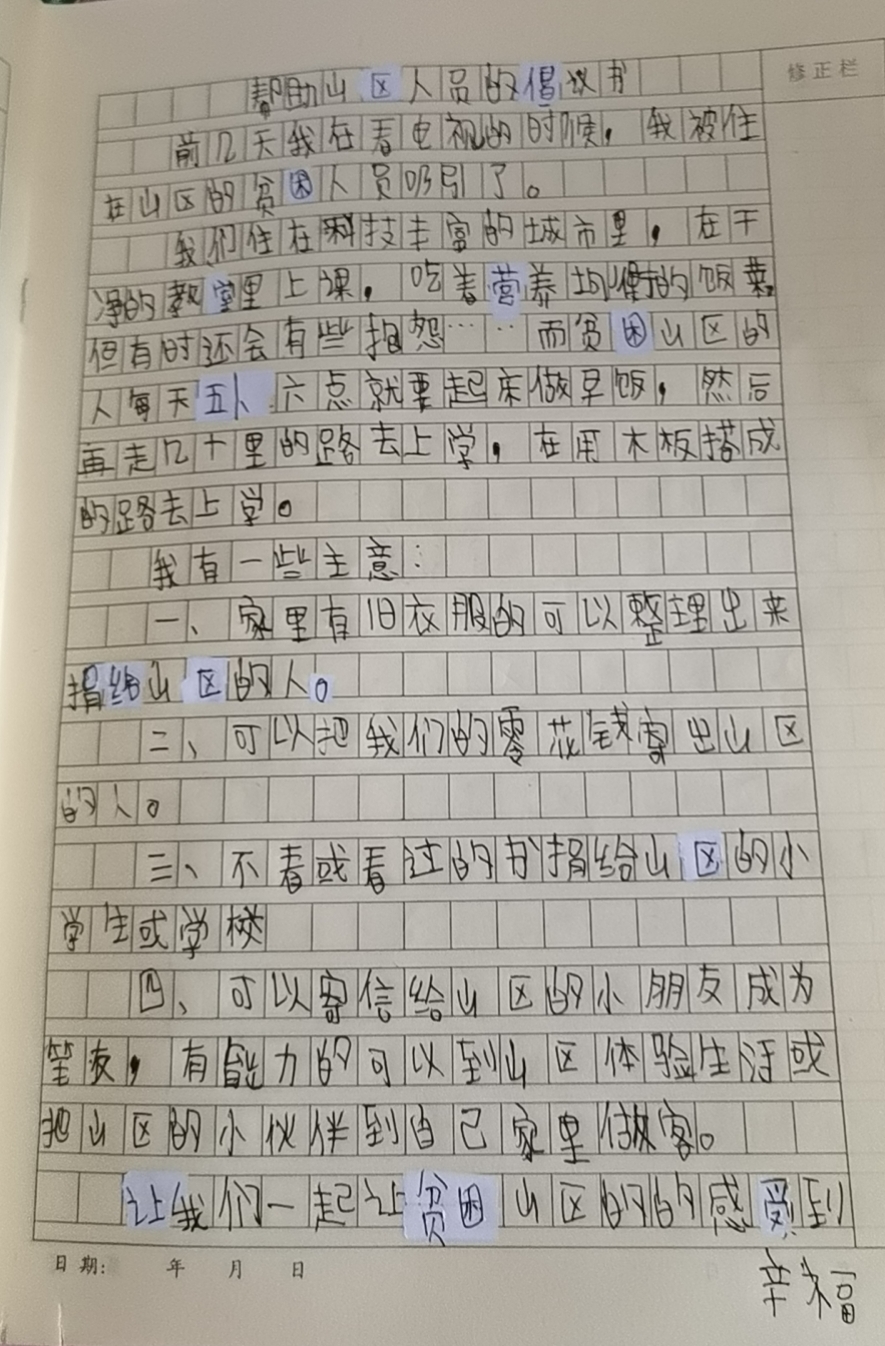 帮助山区人员的倡议书
修正栏
前几天我在看电视的时候，我被住
在山区的贫困人员吸引了。
我们住在科技丰富的城市里，在干
净的教室里上课，吃着营养均衡的饭菜
但有时还会有些抱怨……而贫困山区的
人每天五、六点就要起床做早饭，然后
再走几十里的路去上学，在用木板搭成
的路去上学。
我有一些主意：
一、家里有旧衣服的可以整理出来
捐给山区的人。
二、可以把我们的零花钱寄出山区
的人。
三、不看或看过的书捐给山区的小
学生或学校
四、可以寄信给山区的小朋友成为
笔友，有能力的可以到山区体验生活或
把山区的小伙伴到自己家里做客。
让我们一起让贫困山区的的感受到
幸福
日期： 年 月 日